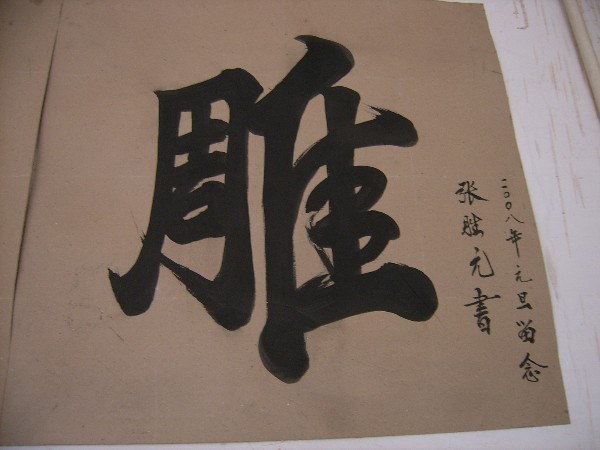 雕
二〇〇八年元旦留念
张胜元書